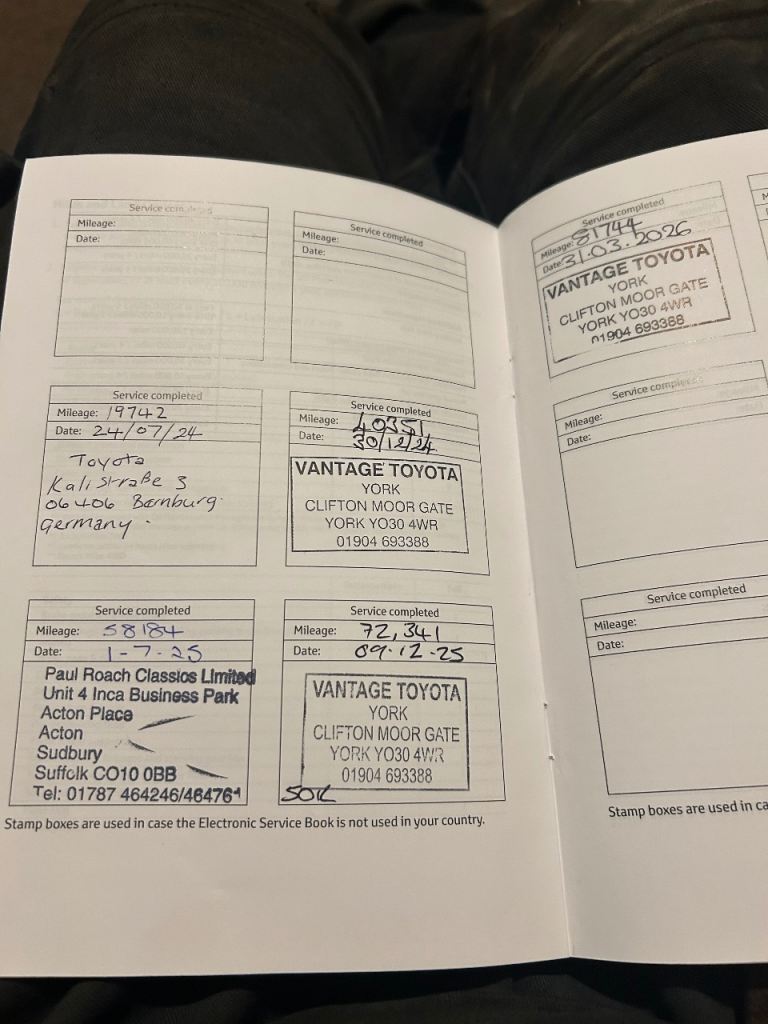 Service completed
Mileage:
Date:
Service completed
Mileage:
Date:
Service completed
Mileage: 19742
Date: 24/07/24
Toyota
Kalistraße 3
06406 Bernburg.
Germany.
Service completed
Mileage: 40351
Date: 30/12/24
VANTAGE TOYOTA
YORK
CLIFTON MOOR GATE
YORK YO30 4WR
01904 693388
Service completed
Mileage: 58184
Date: 1-7-25
Paul Roach Classics Limited
Unit 4 Inca Business Park
Acton Place
Acton
Sudbury
Suffolk CO10 0BB
Tel: 01787 464246/46476
Service completed
Mileage: 72,341
Date: 09.12.25
VANTAGE TOYOTA
YORK
CLIFTON MOOR GATE
YORK YO30 4WR
01904 693388
50K
Stamp boxes are used in case the Electronic Service Book is not used in your country.
Service completed
Mileage: 81744
Date: 31.03.2026
VANTAGE TOYOTA
YORK
CLIFTON MOOR GATE
YORK YO30 4WR
01904 693388
Service completed
Mileage:
Date:
Service completed
Mileage:
Date:
Stamp boxes are used in ca